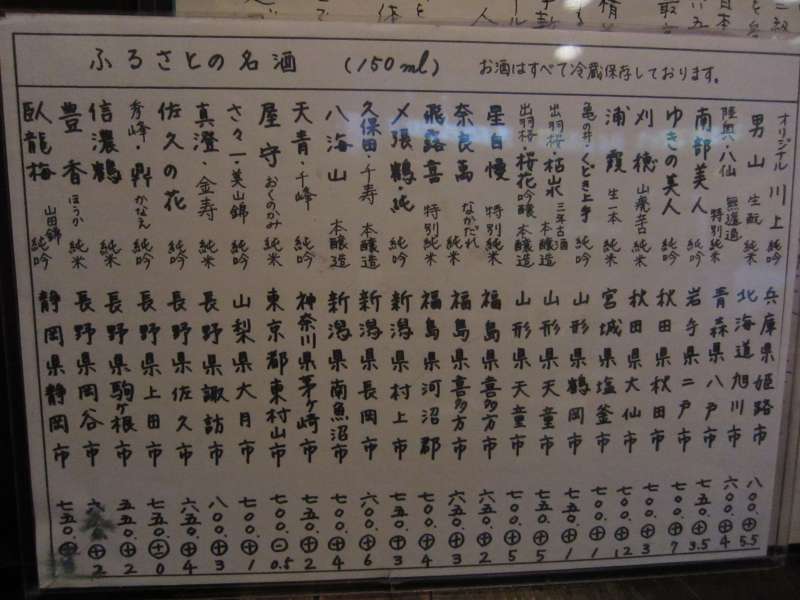 ふるさとの名酒 (150ml) お酒はすべて冷蔵保存しております。
オリジナル 川上 純吟 兵庫県姫路市 八〇〇. ⊕ 5.5
男山 生酛 純米 北海道旭川市 六〇〇. ⊕ 4
陸奥八仙 無濾過 特別純米 青森県八戸市 七五〇. ⊕ 3.5
南部美人 純吟 岩手県二戸市 七〇〇. ⊕ 7
ゆきの美人 純吟 秋田県秋田市 七〇〇. ⊕ 3
刈穂 山廃辛口 純米 秋田県大仙市 七〇〇. ⊕ 12
浦霞 生一本 純米 宮城県塩釜市 七〇〇. ⊕ 1
亀の井・くどき上手 純吟 山形県鶴岡市 七〇〇. ⊕ 1
出羽桜 枯山水 三年古酒 本醸造 山形県天童市 七〇〇. ⊕ 5
出羽桜・桜花吟醸 本醸造 山形県天童市 七〇〇. ⊕ 5
星自慢 特別純米 福島県喜多方市 六五〇. ⊕ 2
奈良萬 なかだれ 純米 福島県喜多方市 六五〇. ⊕ 3
飛露喜 特別純米 福島県河沼郡 七〇〇. ⊕ 4
〆張鶴・純 純吟 新潟県村上市 七〇〇. ⊕ 3
久保田・千寿 本醸造 新潟県長岡市 六〇〇. ⊕ 6
八海山 本醸造 新潟県南魚沼市 七〇〇. ⊕ 4
天青・千峰 純吟 神奈川県茅ヶ崎市 七五〇. ⊕ 2
屋守 おくのかみ 純米 東京都東村山市 七〇〇. ⊖ 0.5
さゝ一・美山錦 純吟 山梨県大月市 七〇〇. ⊕ 1
真澄・金寿 純米 長野県諏訪市 八〇〇. ⊕ 3
佐久の花 純吟 長野県佐久市 六五〇. ⊕ 4
秀峰・鼎 かなえ 純吟 長野県上田市 七五〇. ± 0
信濃鶴 純米 長野県駒ヶ根市 五五〇. ⊕ 2
豊香 ほうか 純米 長野県岡谷市 ⊕ 2
臥龍梅 山田錦 純吟 静岡県静岡市 七五〇.